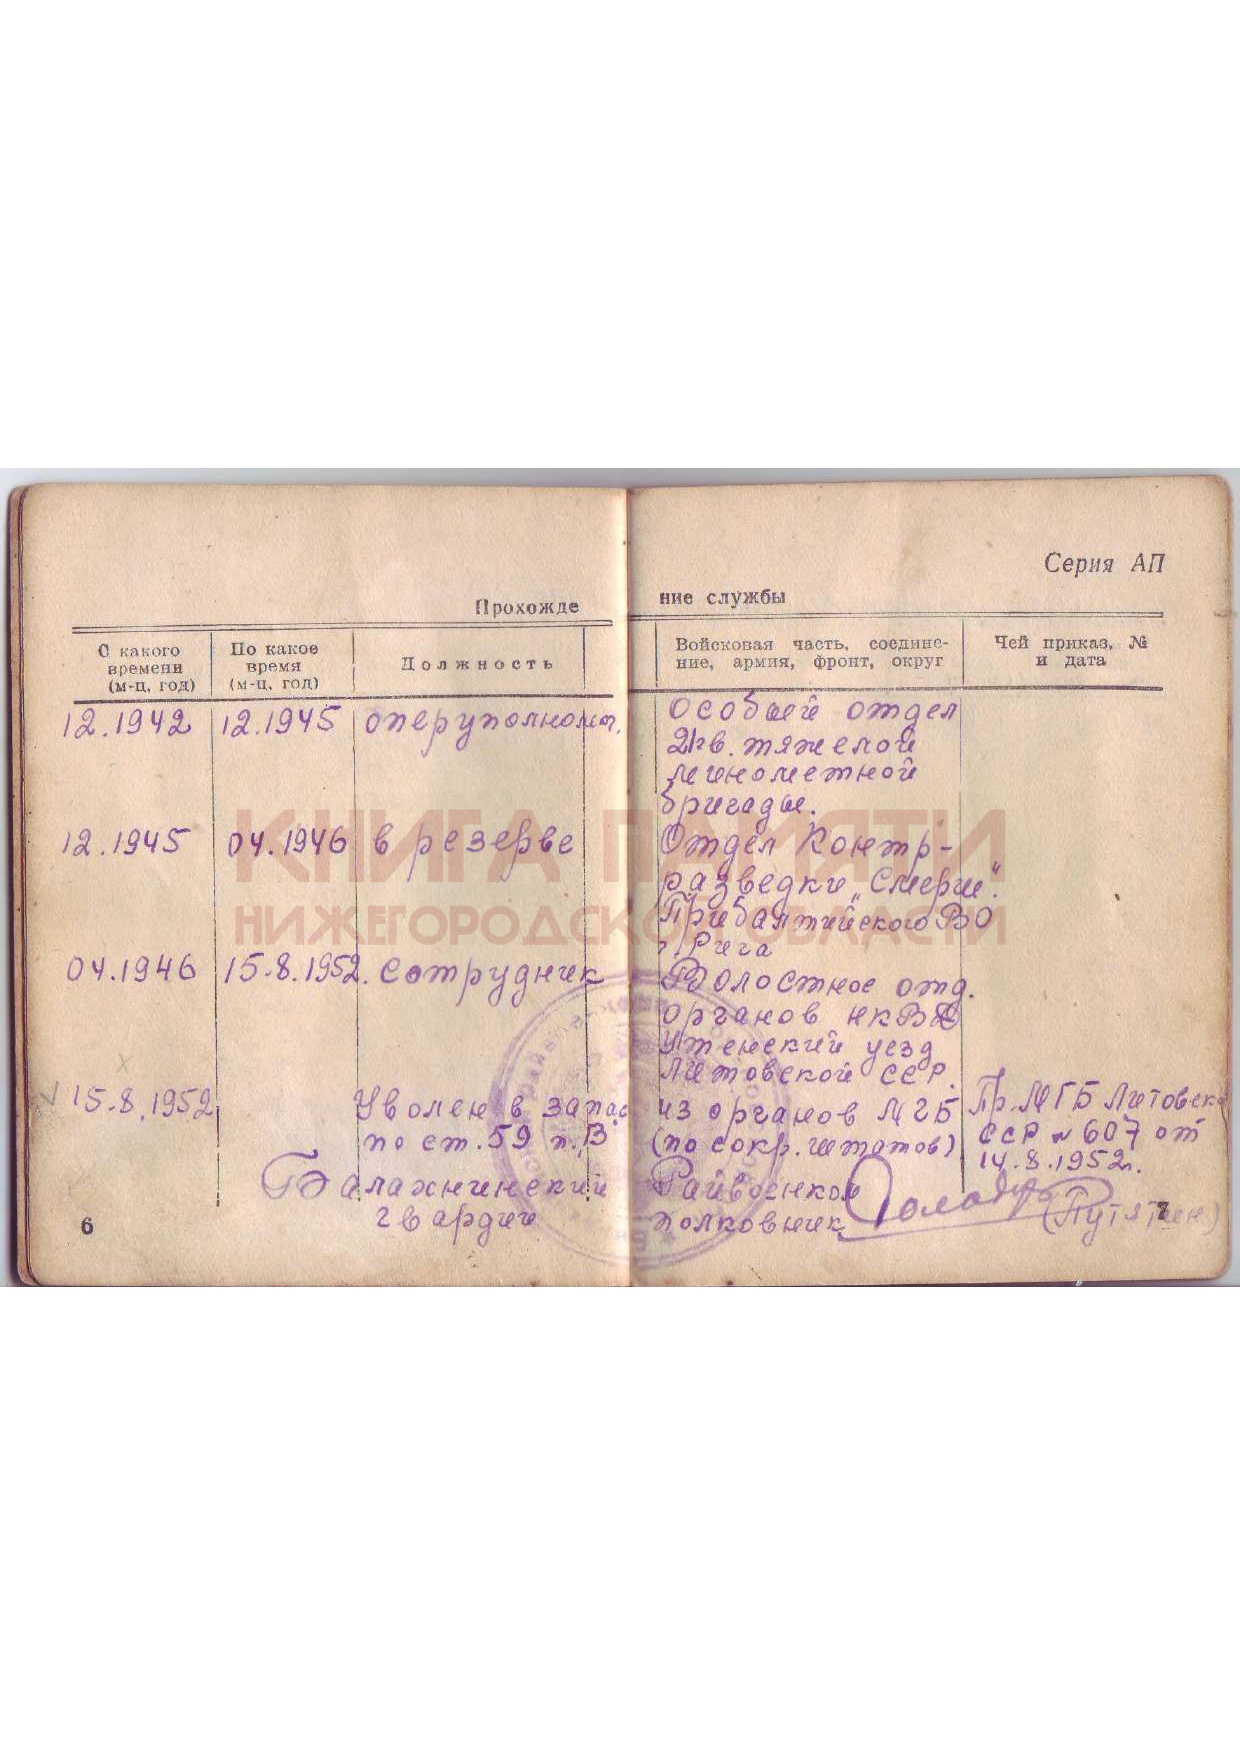 Серия АП
Прохождение службы
С какого времени (м-ц, год)
По какое время (м-ц, год)
Должность
Войсковая часть, соединение, армия, фронт, округ
Чей приказ, № и дата
12.1942 12.1945 оперуполном. Особый отдел
2 гв. тяжелой
минометной
бригады.
12.1945 04.1946 в резерве Отдел Контр-
разведки „Смерш".
Прибалтийского ВО
г. Рига
04.1946 15.8.1952. сотрудник Волостное отд.
органов НКВД
Утенский уезд
Литовской ССР.
15.8.1952 Уволен в запас из органов МГБ Пр. МГБ Литовска
по ст. 59 п. В (по сокр. штатов) ССР № 607 от
14.8.1952г.
Балахнинский Райвоенком
гвардии полковник (Путятин)
6
7
КНИГА ПАМЯТИ
НИЖЕГОРОДСКОЙ ОБЛАСТИ